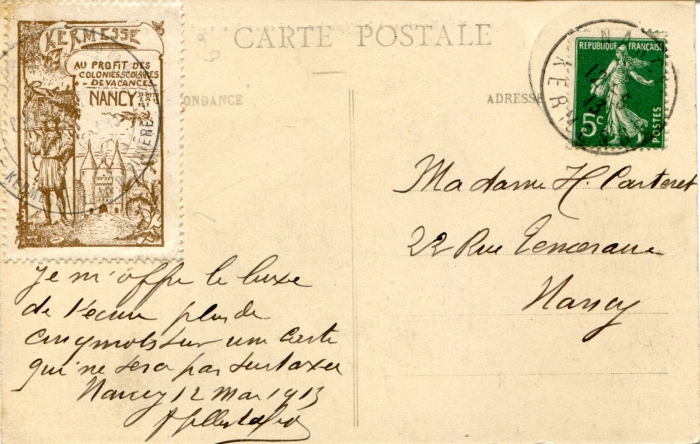 CARTE POSTALE
KERMESSE
AU PROFIT DES
COLONIES SCOLAIRES
DE VACANCES
NANCY
ONDANCE
ADRESSE
REPUBLIQUE FRANÇAISE
5c
POSTES
NAN
KER
Madame H. Carteret
22 Rue
Nancy
Je m'offre le luxe
de t'écrire plus de
cinq mots sur une carte
qui ne sera pas surtaxée
Nancy 12 Mai 1913